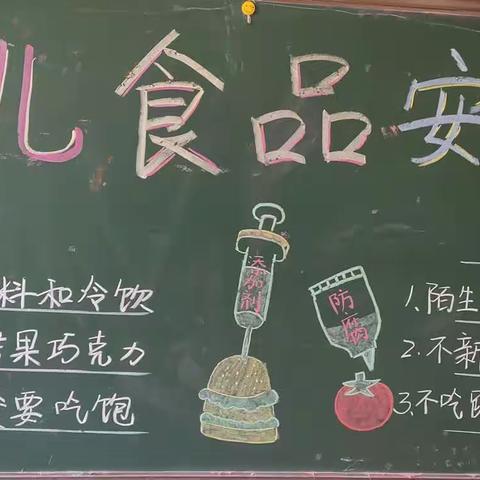 儿食品安
料和冷饮
果巧克力
要吃饱
添加剂
防腐
1.陌生
2.不新
3.不吃